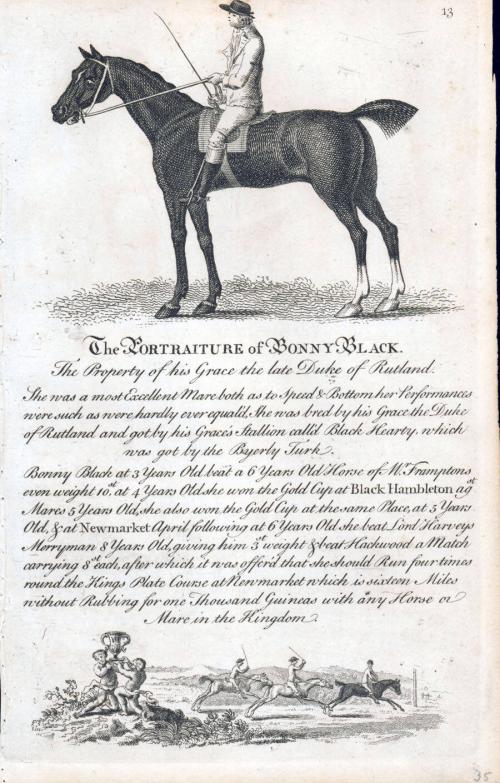 13
The PORTRAITURE of BONNY BLACK.
The Property of his Grace the late Duke of Rutland.
She was a most Excellent Mare both as to Speed & Bottom her Performances
were such as were hardly ever equald, She was bred by his Grace the Duke
of Rutland and got by his Grace's Stallion call'd Black Hearty, which
was got by the Byerly Turk.
Bonny Black at 3 Years Old, beat a 6 Years Old Horse of Mr. Framptons
even weight 10st. at 4 Years Old she won the Gold Cup at Black Hambleton agst
Mares 5 Years Old, she also won the Gold Cup at the same Place, at 5 Years
Old, & at Newmarket April following at 6 Years Old she beat Lord Harveys
Merryman 8 Years Old, giving him 3st weight & beat Hackwood a Match
carrying 8st each, after which it was offer'd that she should Run four times
round the Kings Plate Course at Newmarket which is sixteen Miles
without Rubbing for one Thousand Guineas with any Horse or
Mare in the Kingdom.
35